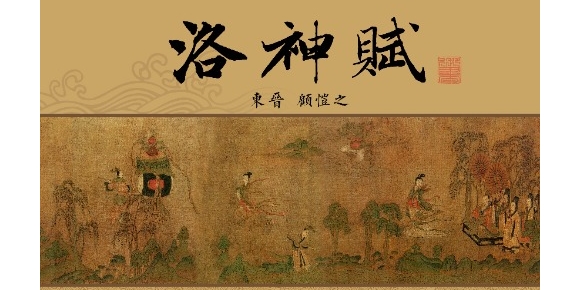 洛神賦
東晉 顧愷之